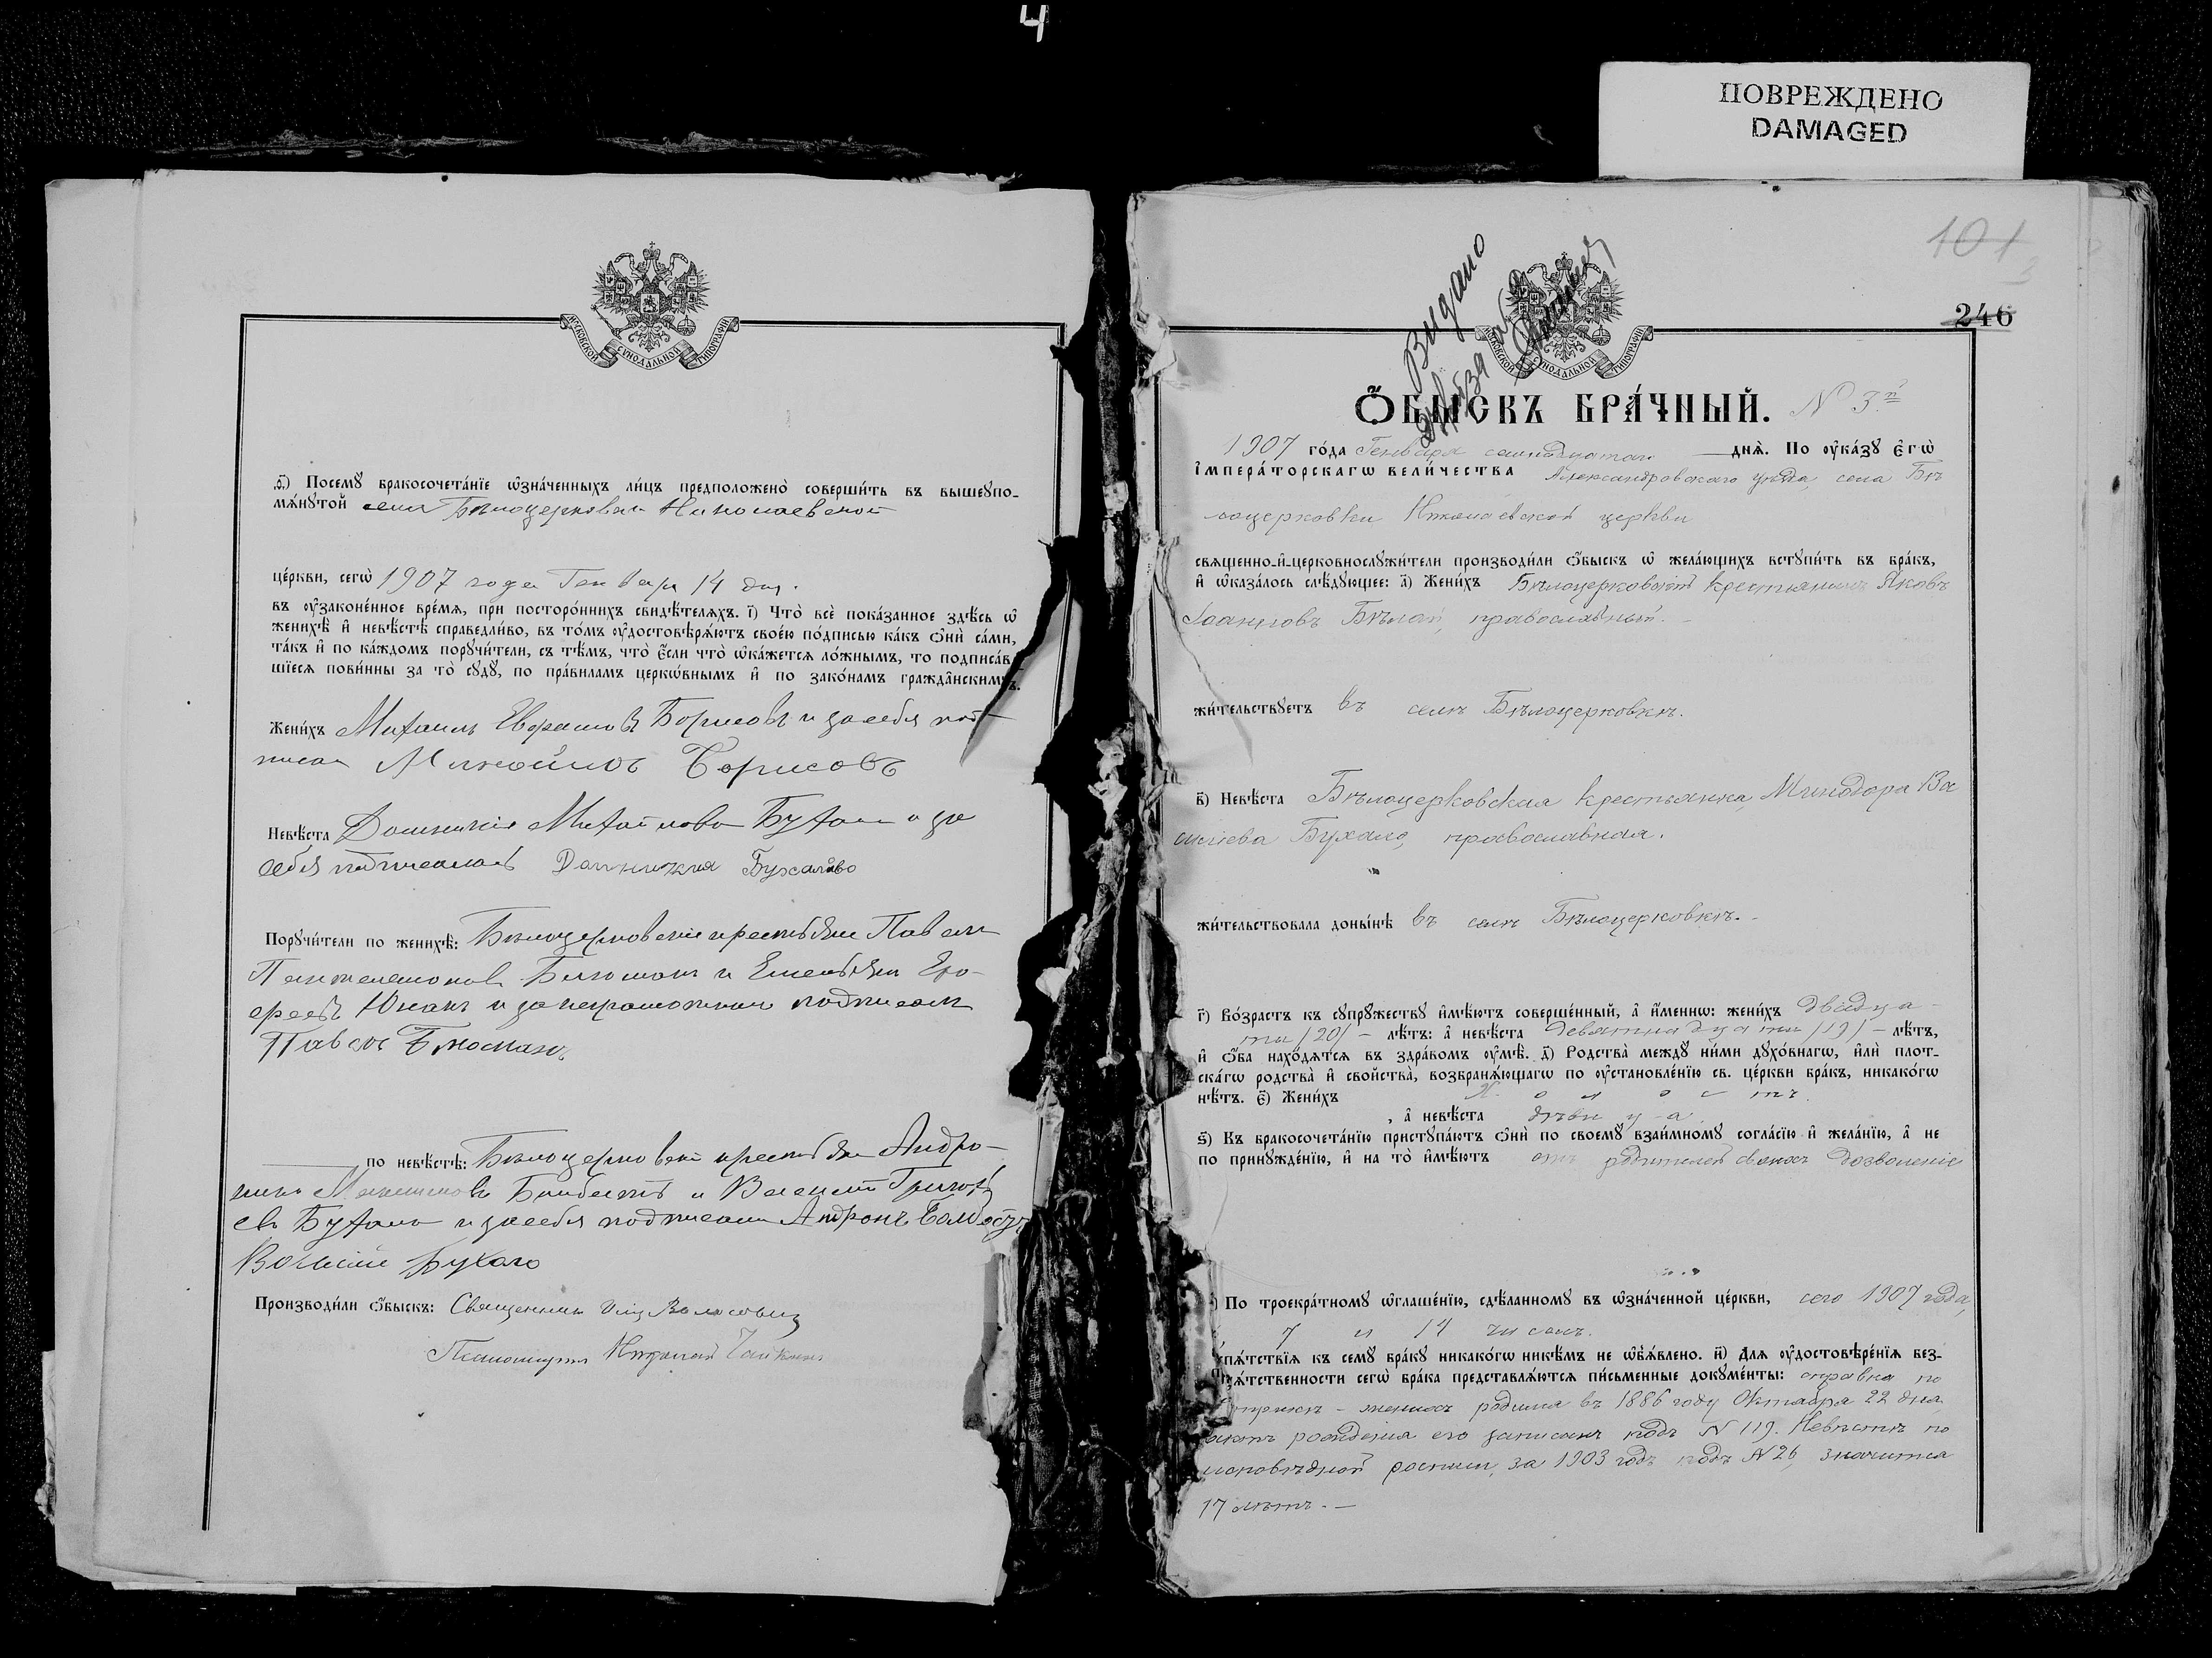 4
ПОВРЕЖДЕНО
DAMAGED
МОСКОВСКОЙ СѴНОДАЛЬНОЙ ТИПОГРАФІИ
ѳ҃) Посемꙋ̀ бракосочета́нїе ѡ҆зна́ченныхъ ли́цъ предположено̀ соверши́ть въ вышеꙋпо-
мѧ́нꙋтой села Бѣлоцерковки Николаевской
це́ркви, сегѡ̀ 1907 года Генваря 14 дня.
въ ᲂу҆зако́ненное вре́мѧ, при посторо́ннихъ свидѣ́телѧхъ. і҃) Что̀ всѐ пока́занное здѣ́сь ѡ҆
женихѣ̀ и҆ невѣ́стѣ справедли́во, въ то́мъ ᲂу҆достовѣрѧ́ютъ свое́ю по́дписью ка́къ ѻ҆нѝ са́ми,
та́къ и҆ по ка́ждомъ порꙋчи́тели, съ тѣ́мъ, что̀ є҆́сли что̀ ѡ҆ка́жетсѧ ло́жнымъ, то подписа́в-
шїесѧ пови́нны за то̀ сꙋдꙋ̀, по пра́виламъ церкѡ́внымъ и҆ по зако́намъ гражда̑нскимъ.
Жени́хъ Михаилъ Борисовъ и за себя под-
писал Борисовъ
Невѣ́ста Домникія Михайлова Бухало и за
себя подписалась Домникия
Порꙋчи́тели по женихѣ̀: Бѣлоцерковскіе крестьяне Павелъ
Пантелеимоновъ и Емельянъ Еро-
феевъ Юханъ и за неграмотныхъ подписалъ
Павелъ
по невѣ́стѣ: Бѣлоцерковскіе крестьяне Андро-
никъ и Василій Григорь-
евъ Бухало и за себя подписали Андронъ
Василій Бухало
Производи́ли ѻ҆́быскъ: Священникъ
Псаломщикъ Николай
101
246
Видано
МОСКОВСКОЙ СѴНОДАЛЬНОЙ ТИПОГРАФІИ
Ѻ҆́БЫСКЪ БРА́ЧНЫЙ. N 3й
1907 го́да Генваря семнадцатаго днѧ̀. По ᲂу҆ка́зꙋ є҆гѡ̀
і҆мпера́торскагѡ вели́чества Александровскаго уѣзда, села Бѣ
лоцерковки Николаевской церкви
свѧще́нно-и҆-церковнослꙋжи́тели производи́ли ѻ҆́быскъ ѡ҆ жела́ющихъ встꙋпи́ть въ бра́къ,
и҆ ѡ҆каза́лось слѣ́дꙋющее: а҃) Жени́хъ Бѣлоцерковскій крестьянинъ Яковъ
Іоанновъ Бѣлай, православный.
жи́тельствꙋетъ въ селѣ Бѣлоцерковкѣ.
в҃) Невѣ́ста Бѣлоцерковская крестьянка Минодора Ва
силіева Бухало, православная.
жи́тельствовала доны́нѣ въ селѣ Бѣлоцерковкѣ.
г҃) Во́зрастъ къ сꙋпрꙋ́жествꙋ и҆мѣ́ютъ соверше́нный, а҆ и҆́меннѡ: жени́хъ двадца-
ти /20/ - лѣ́тъ: а҆ невѣ́ста девятнадцати /19/ - лѣ́тъ,
и҆ ѻ҆́ба нахо́дѧтсѧ въ здра́вомъ ᲂу҆мѣ̀. д҃) Родства̀ междꙋ̀ ни́ми дꙋхо́внагѡ, и҆лѝ плот-
ска́гѡ родства̀ и҆ сво́йства̀, возбранѧ́ющагѡ по ᲂу҆становле́нїю св. це́ркви бра́къ, никако́гѡ
нѣ́тъ. є҃) Жени́хъ х о л о с тъ.
, а҆ невѣ́ста дѣвица
ѕ҃) Къ бракосочета́нїю пристꙋпа́ютъ ѻ҆нѝ по своемꙋ̀ взаи́мномꙋ согла́сїю и҆ жела́нїю, а҆ не
по принꙋжде́нїю, и҆ на то̀ и҆мѣ́ютъ отъ родителей своихъ дозволеніе
) По троекра́тномꙋ ѡ҆глаше́нїю, сдѣ́ланномꙋ въ ѡ҆зна́ченной це́ркви, сего 1907 года,
7 и 14 чиселъ.
пѧ́тствїѧ къ семꙋ̀ бра́кꙋ никако́гѡ никѣ́мъ не ѡ҆б̾ѧ́влено. и҃) Длѧ ᲂу҆достовѣре́нїѧ без-
пѧ́тственности сегѡ̀ бра́ка представлѧ́ютсѧ пи́сьменные докꙋме́нты: справка по
метрикѣ - женихъ родился въ 1886 году Октября 22 дня
актъ рожденія его записанъ подъ N 119. Невѣстѣ по
исповѣдной росписи, за 1903 годъ подъ N 26, значится
17 лѣтъ. —